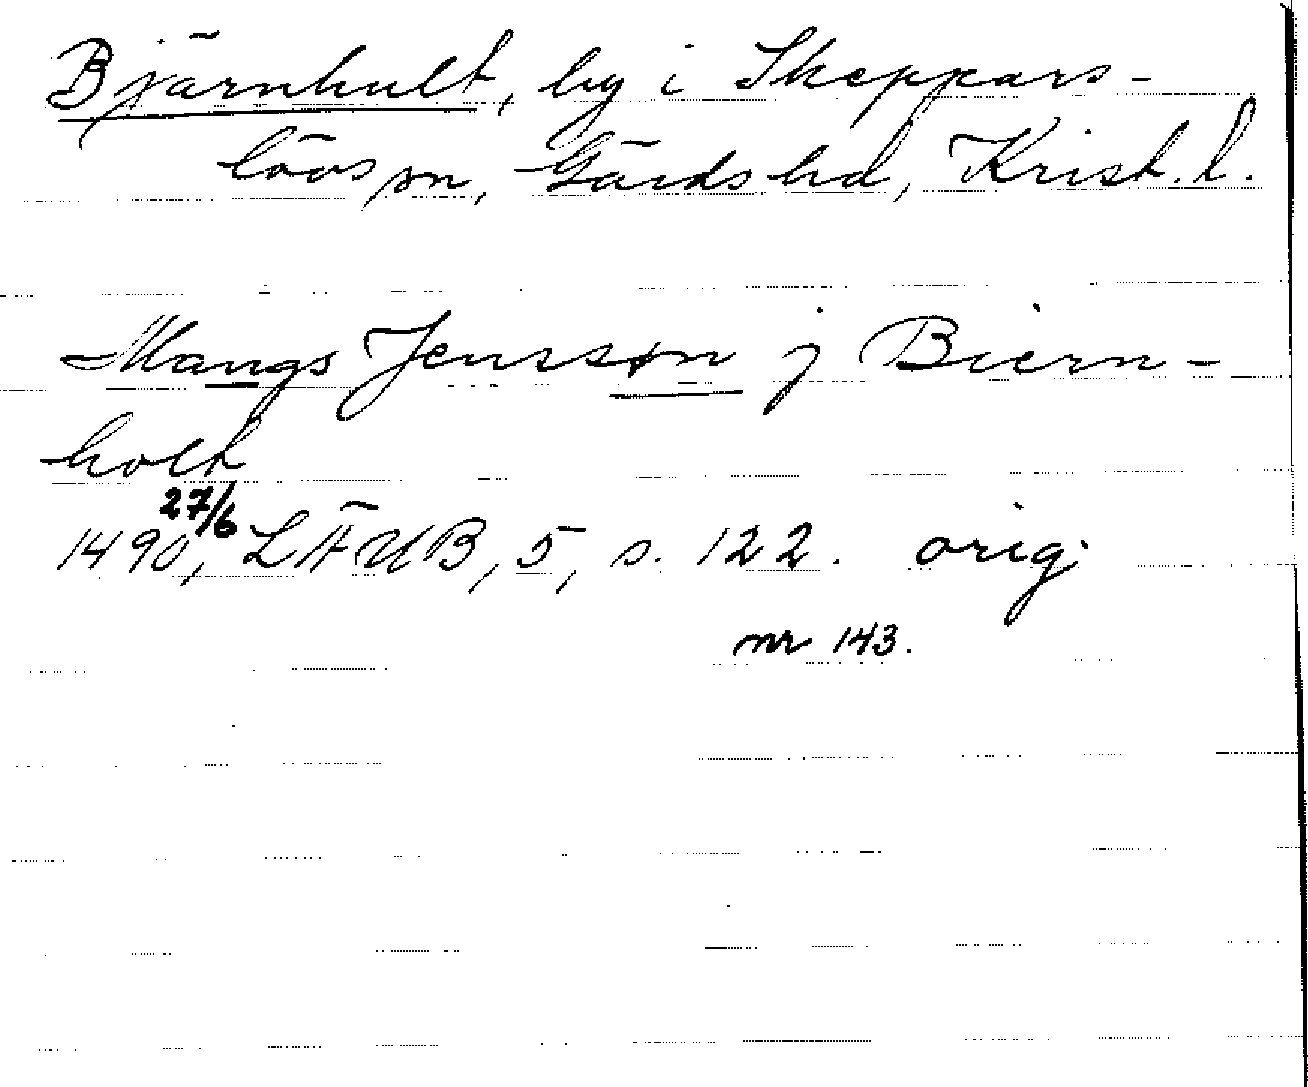 Bjärnhult, by i Skeppars-
lövs sn, Gärds hd, Krist. l.
Mangs Jenssøn j Biern-
holt
1490 27/6, LÄUB, 5, s. 122. orig.
nr 143.